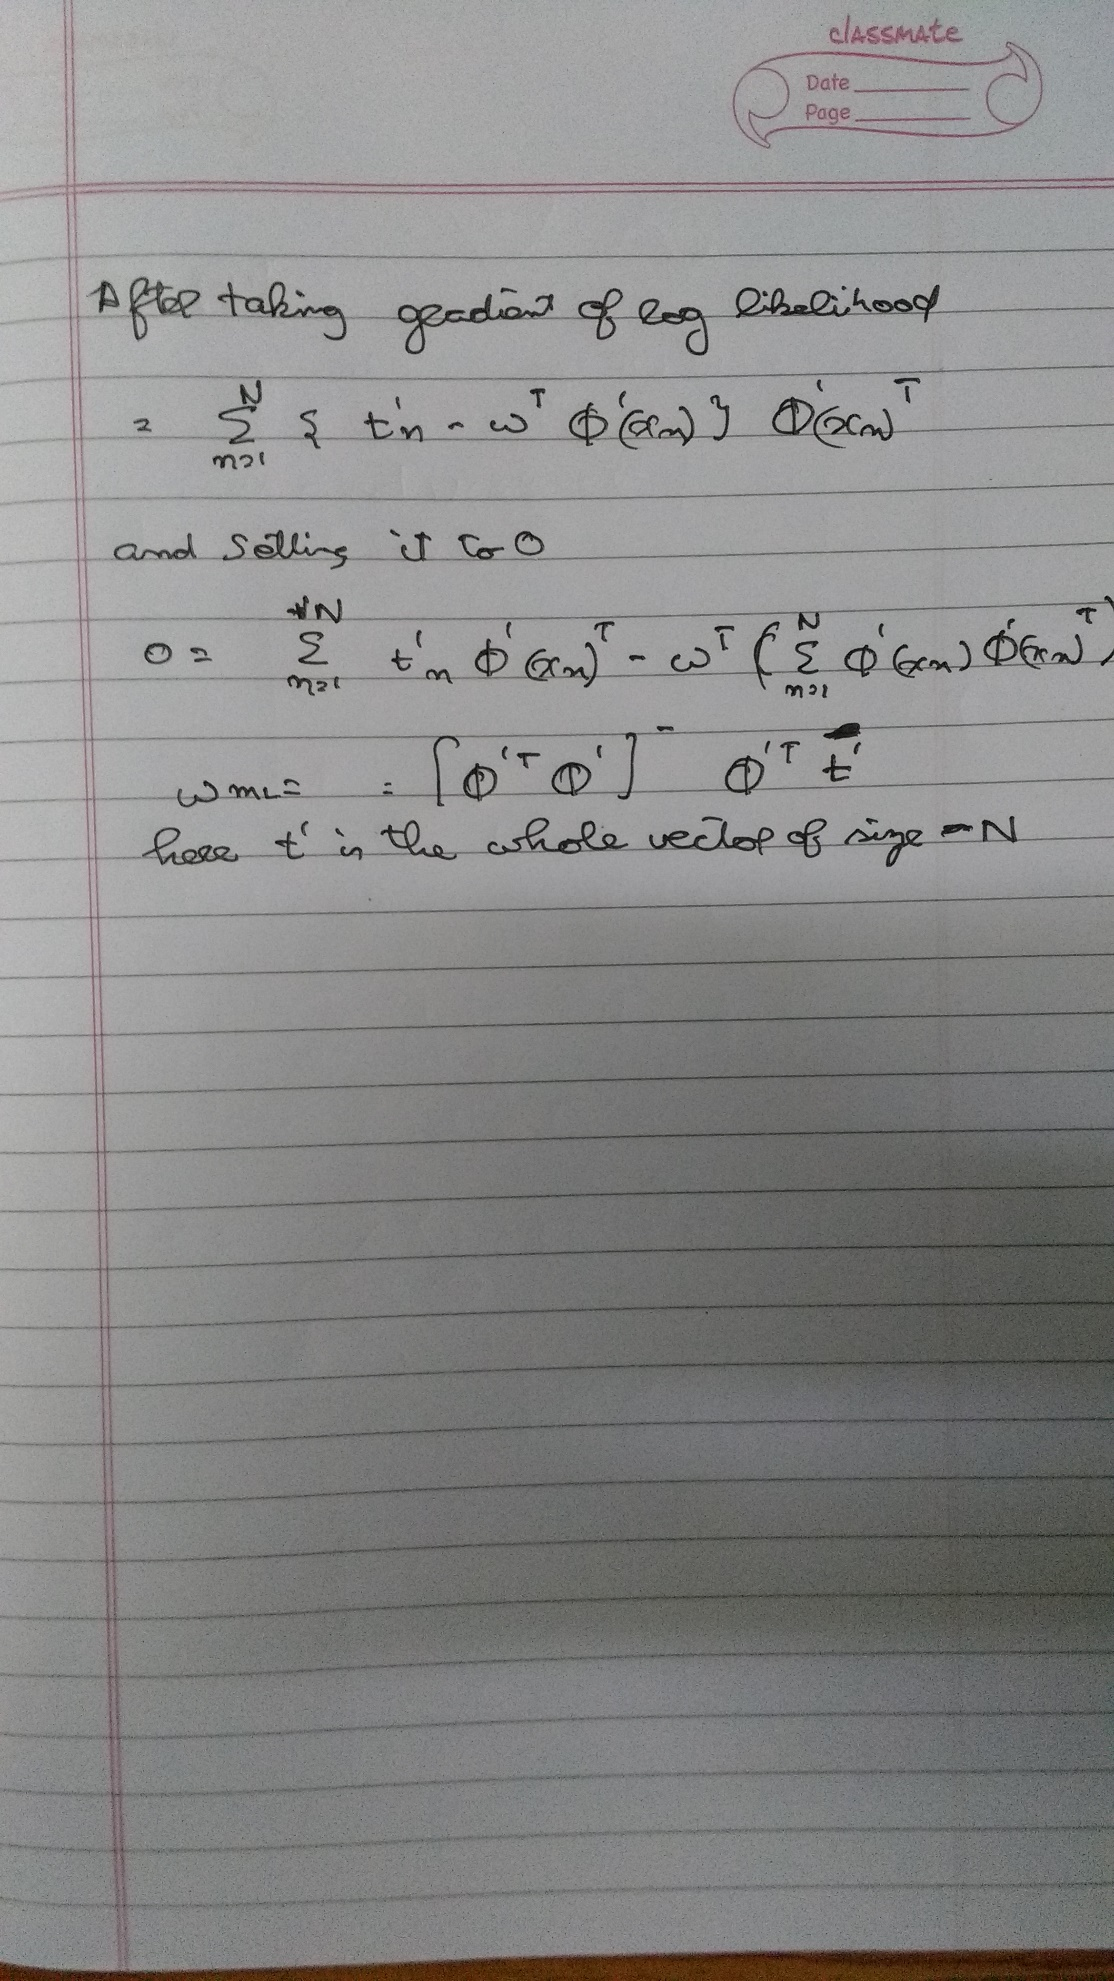 classmate
Date
Page
After taking gradient of log likelihood
= Σ_{n=1}^{N} { t'n - w^T Φ'(xn) } Φ'(xn)^T
and setting it to 0
0 = Σ_{n=1}^{N} t'n Φ'(xn)^T - w^T ( Σ_{n=1}^{N} Φ'(xn) Φ'(xn)^T )
wML = = [Φ'^T Φ']^- Φ'^T t'
here t' is the whole vector of size N